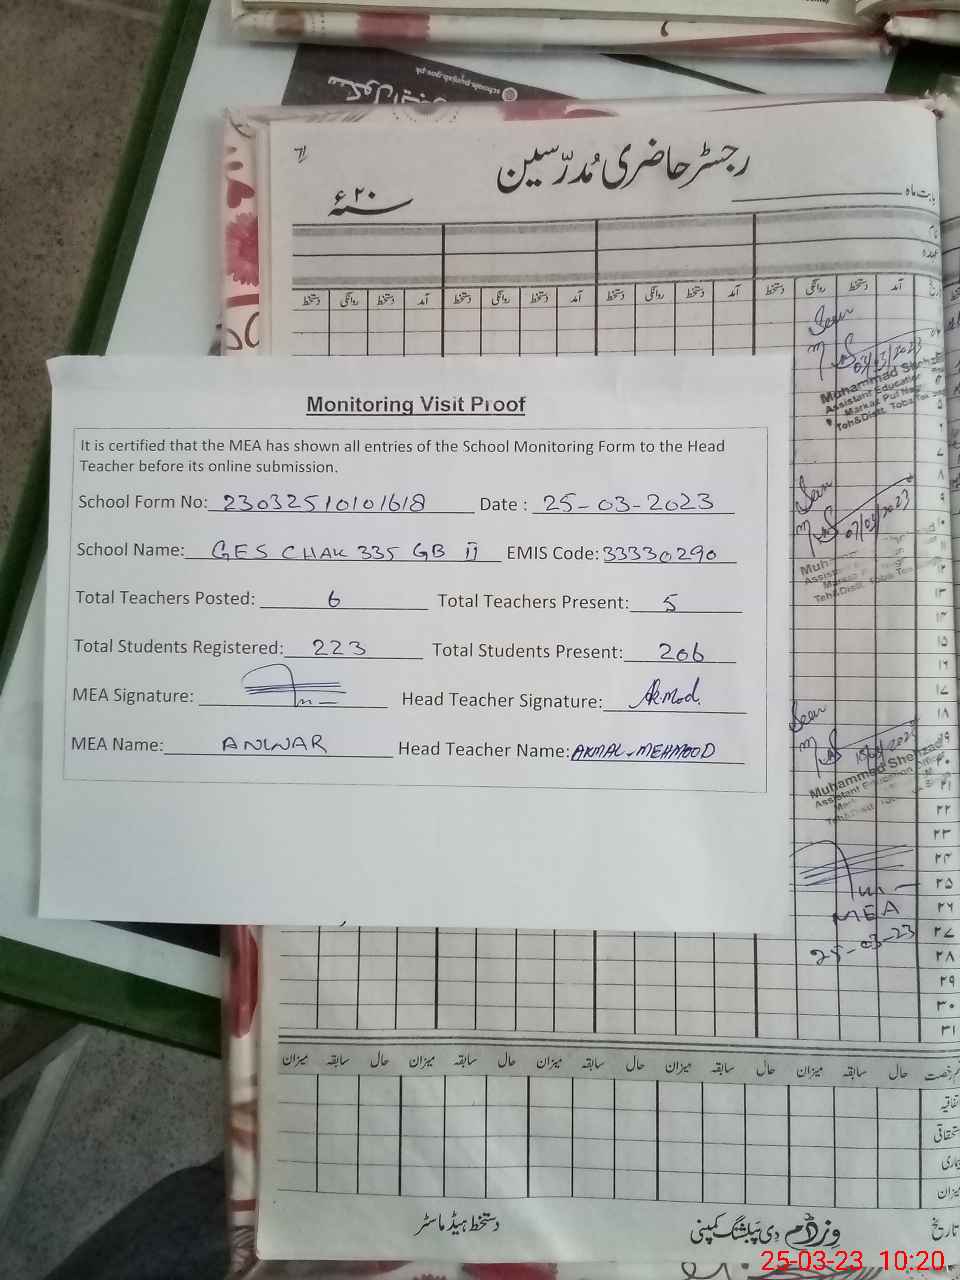 schools.punjab.gov.pk
رجسٹر حاضری مُدرّسین
سنہ ۲۰ء
بابت ماہ
نام
عہدہ
دستخط روانگی دستخط آمد دستخط روانگی دستخط آمد دستخط روانگی دستخط آمد دستخط روانگی دستخط آمد
Seen
03/03/2023
Muhammad Shehzad
Assistant Education
Markaz
Teh&Distt. Toba Tek
Monitoring Visit Proof
It is certified that the MEA has shown all entries of the School Monitoring Form to the Head
Teacher before its online submission.
School Form No: 23032510101618 Date : 25-03-2023
School Name: GES CHAK 335 GB II EMIS Code: 33330290
Total Teachers Posted: 6 Total Teachers Present: 5
Total Students Registered: 223 Total Students Present: 206
MEA Signature: Head Teacher Signature: Akmal
MEA Name: ANWAR Head Teacher Name: AKMAL-MEHMOOD
Seen
07/03/2023
Seen
Muhammad Shehzad
Assistant Education Officer
MEA
25-03-23
۵
۶
۷
۸
۹
۱۰
۱۱
۱۲
۱۳
۱۴
۱۵
۱۶
۱۷
۱۸
۱۹
۲۰
۲۱
۲۲
۲۳
۲۴
۲۵
۲۶
۲۷
۲۸
۲۹
۳۰
۳۱
میزان سابقہ حال میزان سابقہ حال میزان سابقہ حال میزان سابقہ حال میزان سابقہ حال
میزان
دستخط ہیڈ ماسٹر
وزڈم دی پبلشنگ کمپنی
تاریخ
25-03-23 10:20